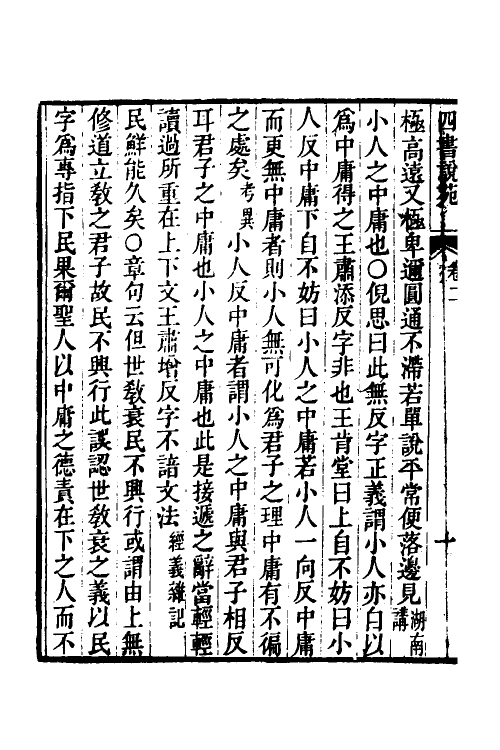 四書說苑 卷二 十
極高遠又極卑邇圓通不滯若單說平常便落邊見湖南講
小人之中庸也〇倪思曰此無反字正義謂小人亦自以
爲中庸得之王肅添反字非也王肯堂曰上自不妨曰小
人反中庸下自不妨曰小人之中庸若小人一向反中庸
而更無中庸者則小人無可化爲君子之理中庸有不徧
之處矣考異小人反中庸者謂小人之中庸與君子相反
耳君子之中庸也小人之中庸也此是接遞之辭當輕輕
讀過所重在上下文王肅增反字不諳文法經義雜記
民鮮能久矣〇章句云但世敎衰民不興行或謂由上無
修道立敎之君子故民不興行此誤認世敎衰之義以民
字爲專指下民果爾聖人以中庸之德責在下之人而不